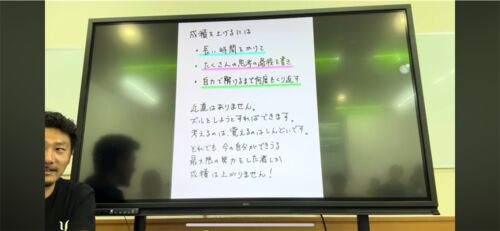 成績を上げるには
・長い時間をかけて
・たくさんの思考の過程を書き
・自力で解けるまで何度もくり返す
近道はありません。
ズルをしようとすればできます。
考えるのは、覚えるのはしんどいです。
それでも、今の自分ができうる
最大限の努力をした者しか
成績は上がりません!